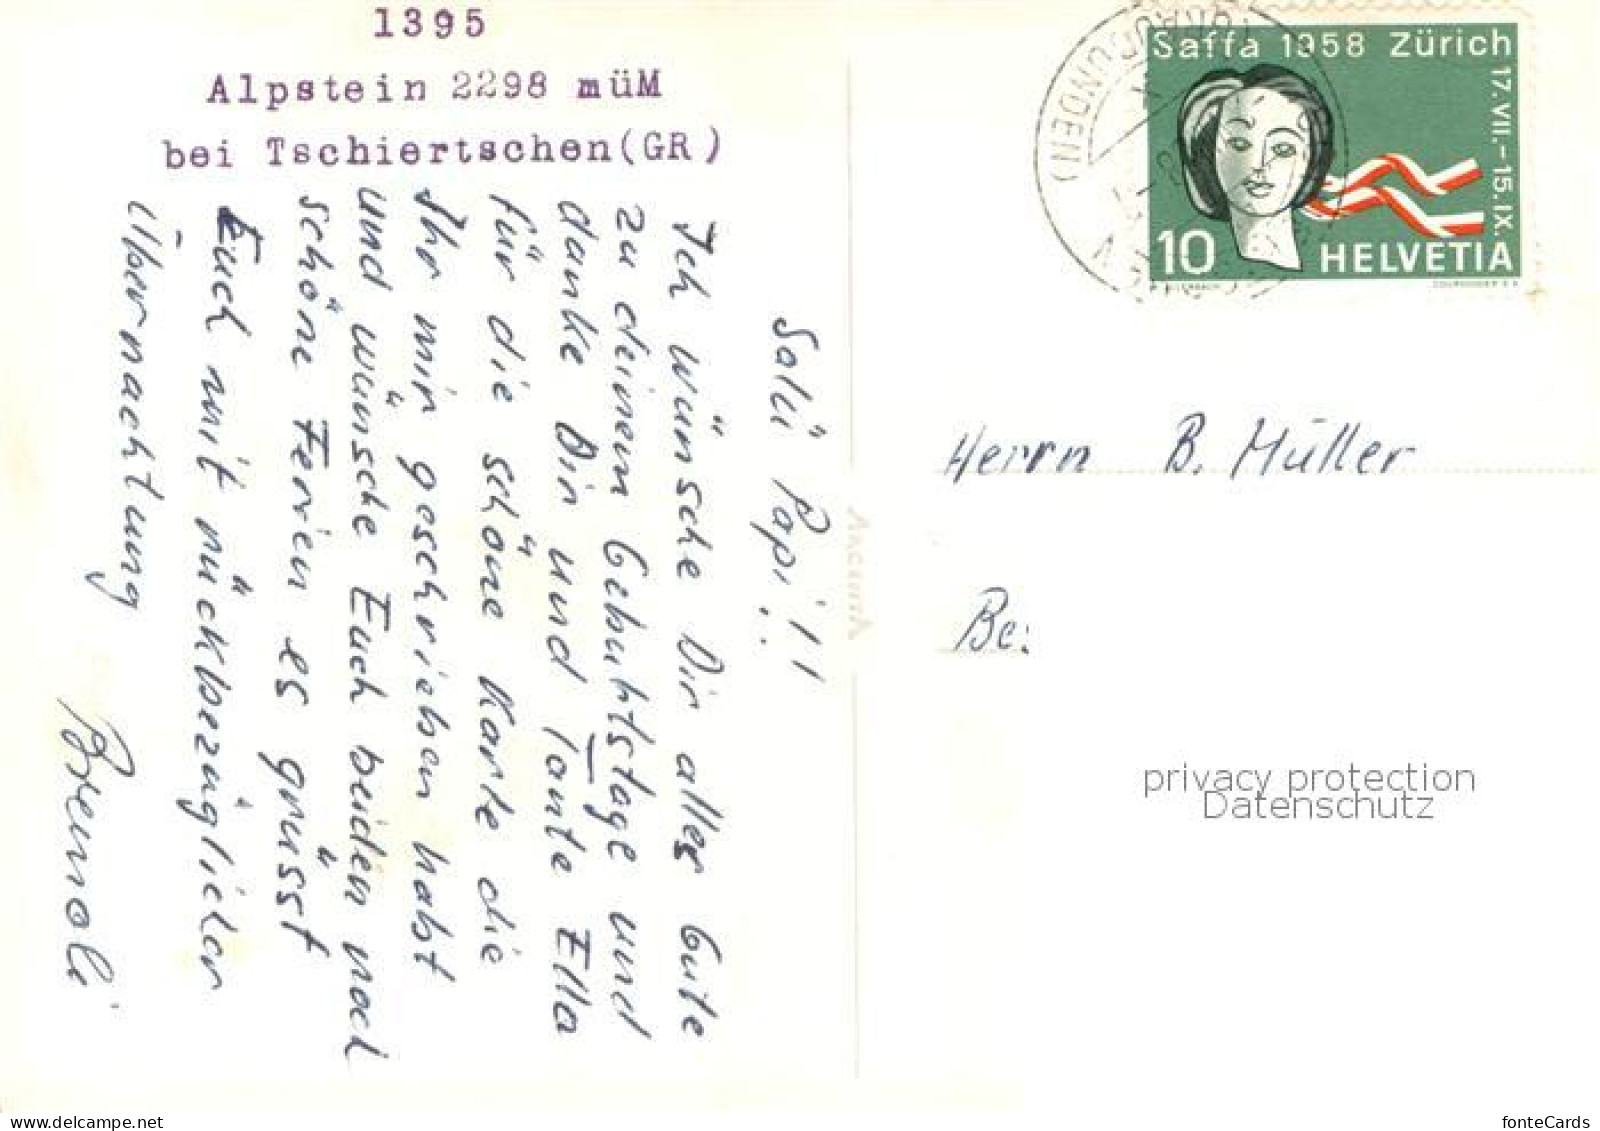 1395
Alpstein 2298 müM
bei Tschiertschen(GR)
Salü Papi!!
Ich wünsche Dir alles Gute
zu deinem Geburtstage und
danke Dir und Tante Ella
für die schöne Karte die
Ihr mir geschrieben habt
und wünsche Euch beiden noch
schöne Ferien es grüsst
Euch mit rückbezüglicher
Übernachtung
Saffa 1958 Zürich
17.VII.-15.IX.
10 HELVETIA
(GRAUBÜNDEN)
Herrn B. Müller
Be:
privacy protection
Datenschutz
delcampe.net
fonteCards